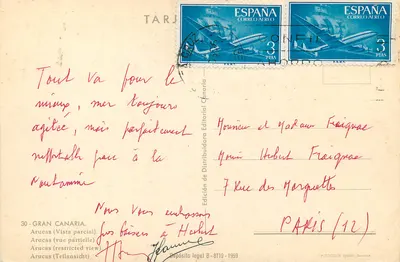 TARJ
ESPAÑA
CORREO AEREO
3
PTAS
ESPAÑA
CORREO AEREO
3
PTAS
Tout va pour le
mieux, mer toujours
agitée, mais parfaitement
supportable grace à la
Nous vous embrassons
Gros baisers à Hubert
Monsieur et Madame Fraignac
Hubert Fraignac
7 Rue des Marguettes
PARIS (12)
Edición de Distribuidora Editorial Canaria
20 - GRAN CANARIA.
Arucas (Vista parcial)
Arucas (vue partielle)
Arucas (restricted view)
Arucas (Teilansicht)
Depósito legal B